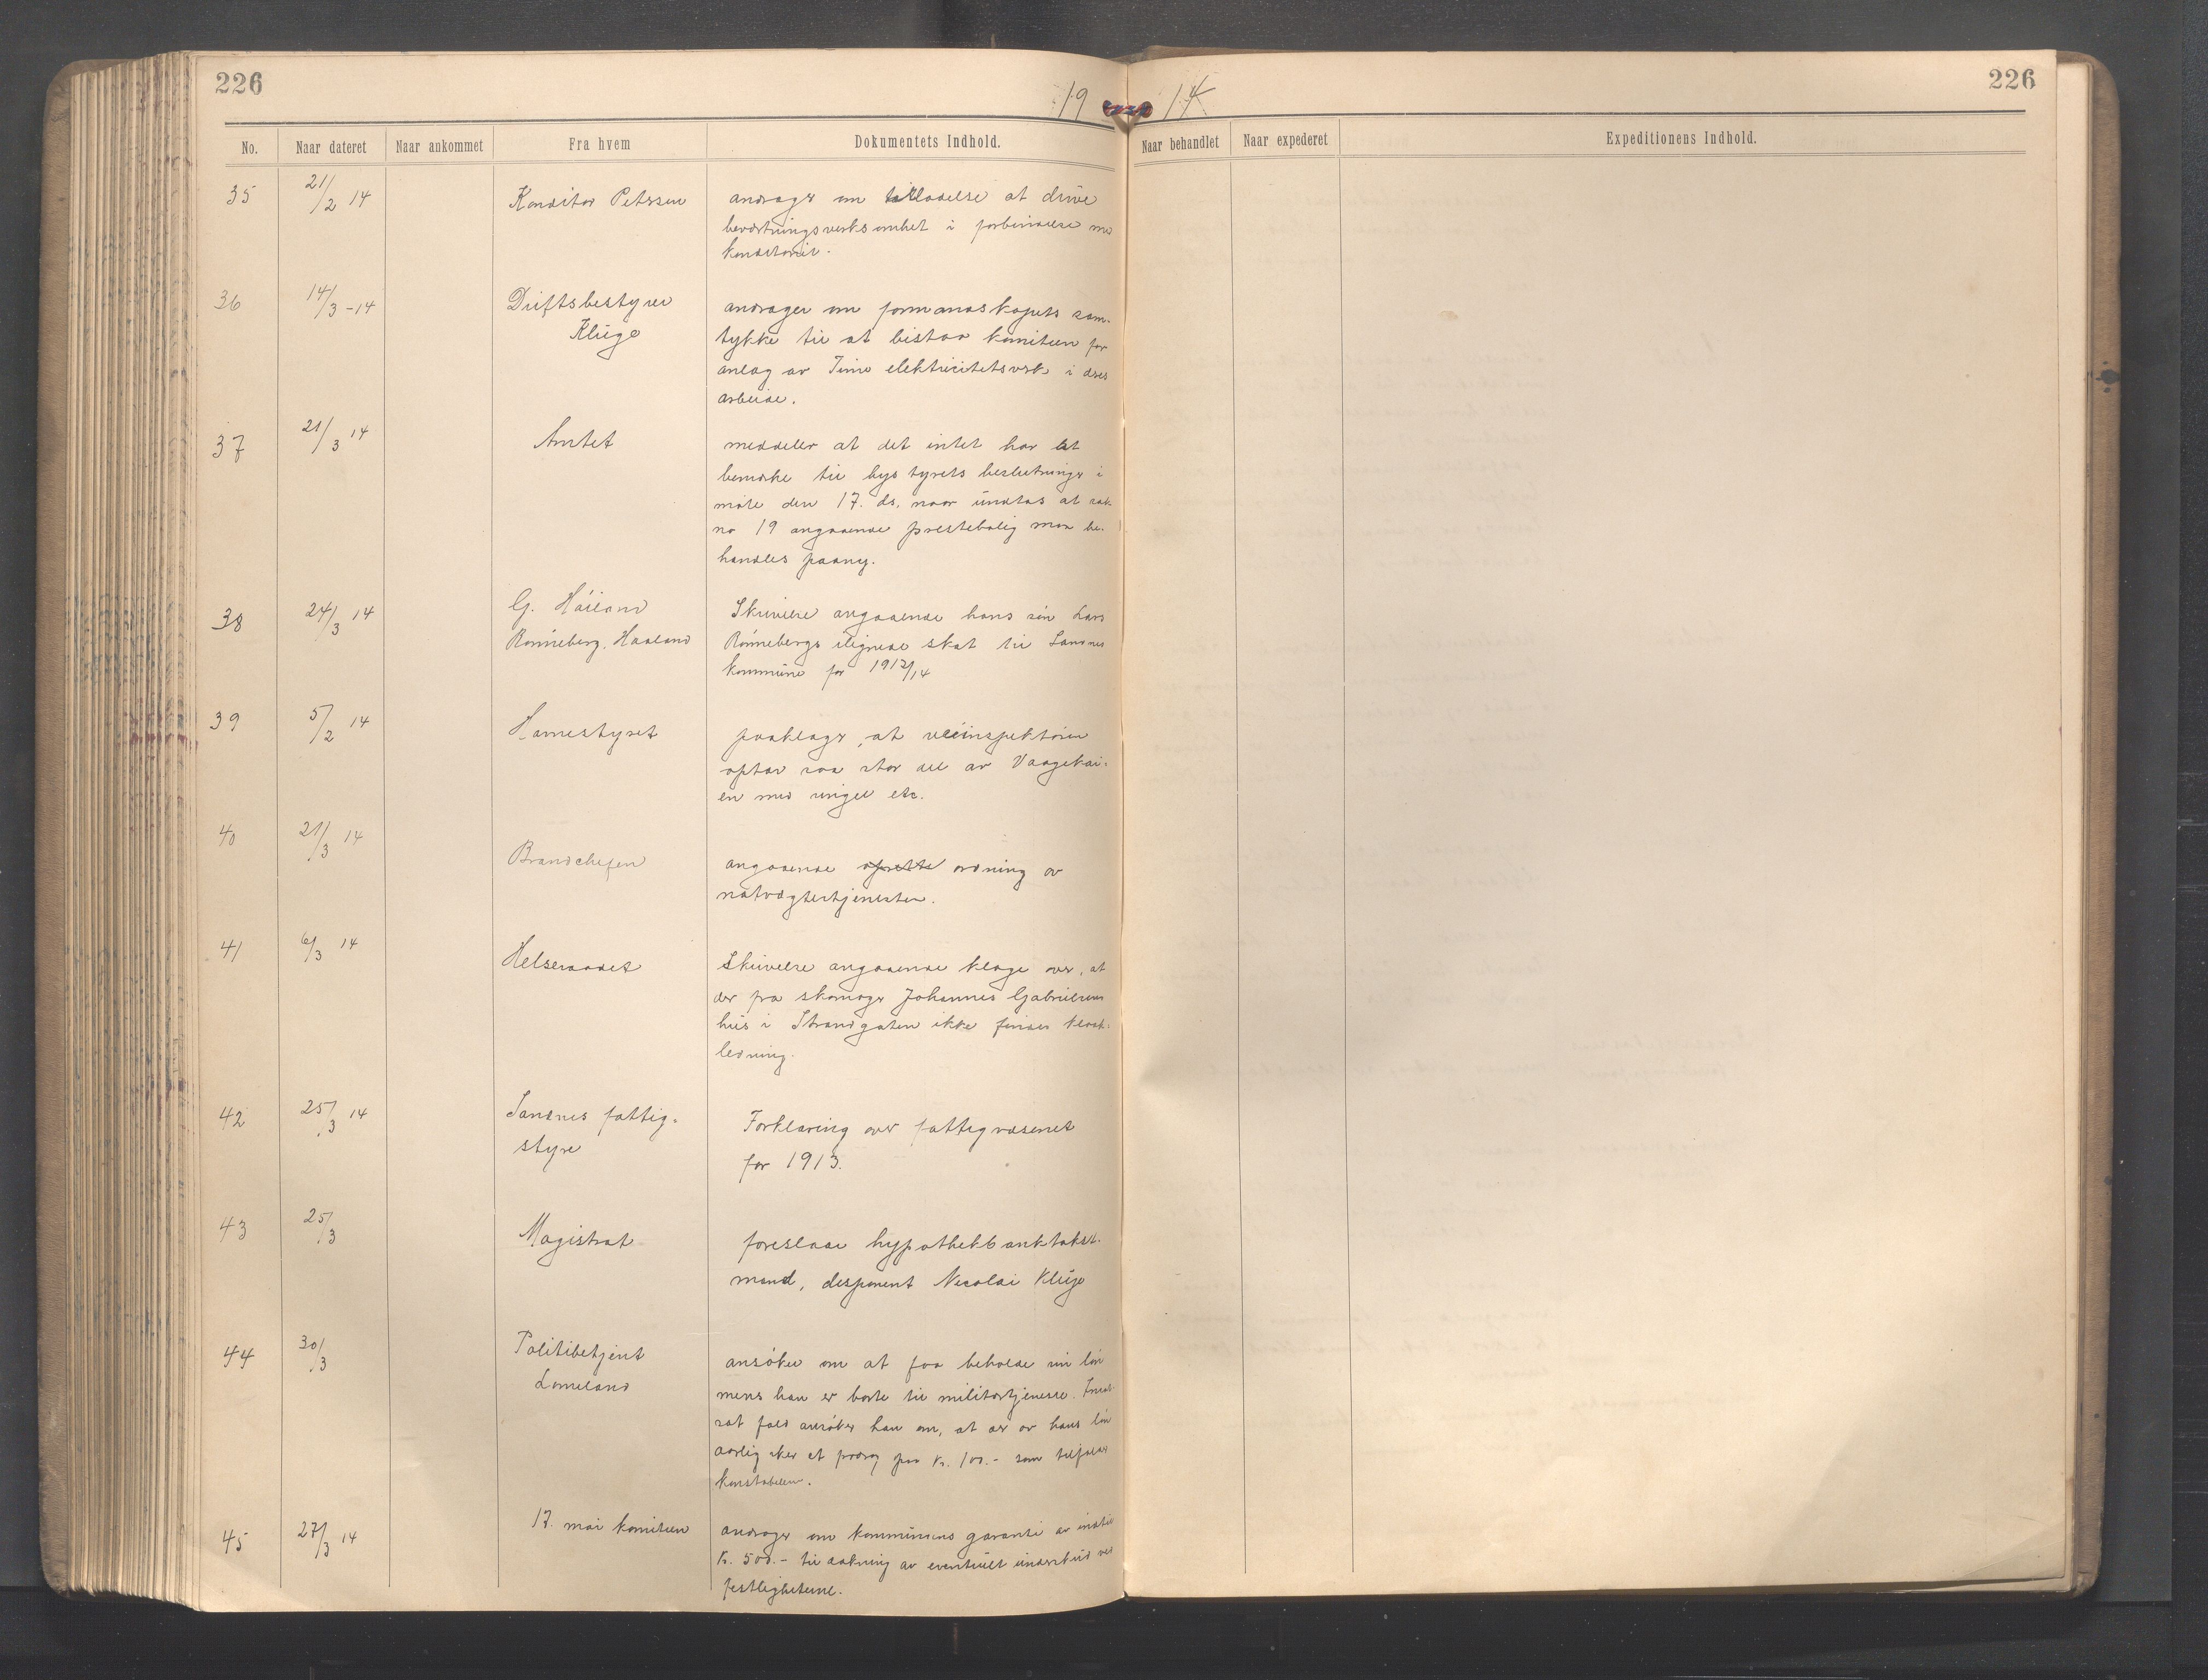 226
19 14
226
No. Naar dateret Naar ankommet Fra hvem Dokumentets Indhold. Naar behandlet Naar expederet Expeditionens Indhold.
35 21/2 14 Konditor Petersen andrager om tilladelse at drive
bevertningsverksomhet i forbindelse med
konditoriet.
36 14/3 -14 Driftsbestyrer andrager om formandskapets sam-
Kluge tykke til at bistaa komiteen for
anlæg av Time elektricitetsverk i deres
arbeide.
37 21/3 14 Amtet meddeler at det intet har at
bemerke til bystyrets beslutninger i
møte den 17. ds. naar undtas at sak
no 19 angaaende prestebolig maa be-
handles paany.
38 24/3 14 G. Håiland Skrivelse angaaende hans søn Lars
Rønneberg, Haaland Rønnebergs ilignede skat til Sandnes
kommune for 1913/14
39 5/2 14 Havnestyret paaklager, at veiinspektøren
optar saa stor del av Vaagekai-
en med singel etc.
40 21/3 14 Brandchefen angaaende oprette ordning av
natvægtertjenesten.
41 6/3 14 Helseraadet Skrivelse angaaende klage over, at
der fra skomager Johannes Gabrielsens
hus i Strandgaten ikke findes kloak-
ledning.
42 25/3 14 Sandnes fattig- Forklaring over fattigvæsenet
styre for 1913.
43 25/3 Magistrat foreslaar hypothekbanktakst-
mand, disponent Nicolai Kluge
44 30/3 Politibetjent ansøker om at faa beholde sin løn
Lomeland mens han er borte til militærtjeneste. I mot-
sat fald ansøker han om, at der av hans løn
aarlig sker et fradrag paa Kr. 100.- som tilfalder
konstabelen.
45 27/3 14 17. mai komiteen andrager om kommunens garanti av indtil
Kr. 500.- til dækning av eventuelt underskud ved
festligheterne.